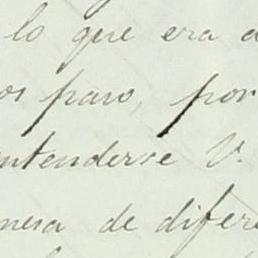 lo que era a
os paso, por
ntenderse V.
nera de difere